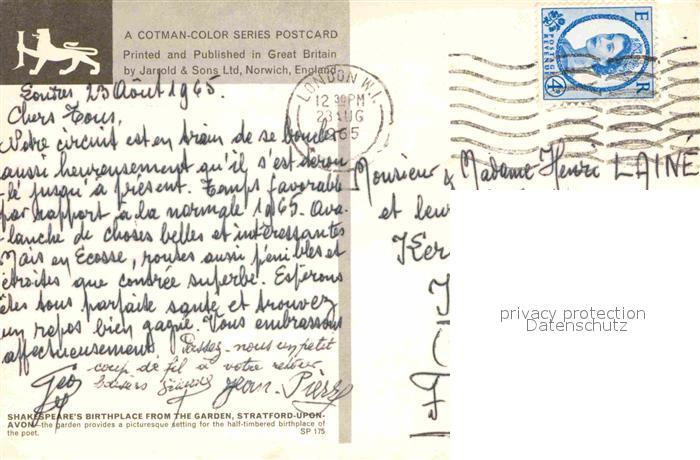 A COTMAN-COLOR SERIES POSTCARD
Printed and Published in Great Britain
by Jarrold & Sons Ltd, Norwich, England
Londres 23 Août 1965.
Chers Tous,
Notre circuit est en train de se boucler
aussi heureusement qu'il s'est dérou-
lé jusqu'à présent. Temps favorable
par rapport à la normale 1965. Ava-
lanche de choses belles et intéressantes
Mais en Ecosse, routes aussi pénibles et
étroites que contrée superbe. Espérons
êtes tous parfaite santé et trouvez
un repos bien gagné. Vous embrassons
affectueusement. Passez-nous un petit
coup de fil à votre retour
Jean-Pierre
SHAKESPEARE'S BIRTHPLACE FROM THE GARDEN, STRATFORD-UPON-
AVON—the garden provides a picturesque setting for the half-timbered birthplace of
the poet.
SP 175
LONDON W.1.
12 30 PM
23 AUG
1965
E R
POSTAGE
4D
Monsieur & Madame Henri LAINÉ
et leur
Ker
privacy protection
Datenschutz